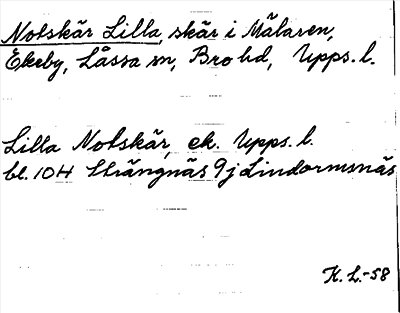 Notskär Lilla, skär i Mälaren,
Ekeby, Låssa sn, Bro hd, Upps. l.
Lilla Notskär, ek. Upps. l.
bl. 104 Strängnäs 9j Lindormsnäs
K. L.-58